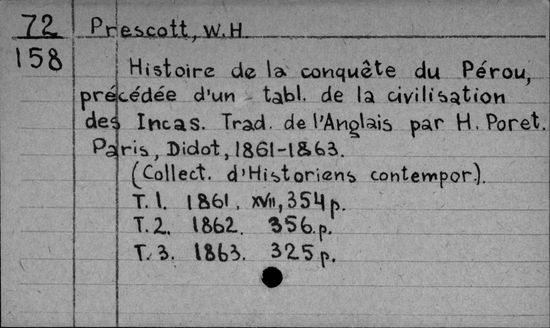 72 Prescott, W.H.
158
Histoire de la conquête du Pérou,
précédée d'un tabl. de la civilisation
des Incas. Trad. de l'Anglais par H. Poret.
Paris, Didot, 1861-1863.
(Collect. d'Historiens contempor.).
T. 1. 1861. XVII, 354 p.
T. 2. 1862. 356 p.
T. 3. 1863. 325 p.